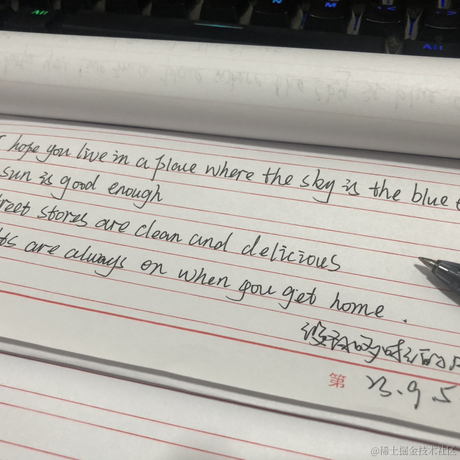 hope you live in a place where the sky is the blue
sun is good enough
reet stores are clean and delicious
ts are always on when you get home .
第 23.9.5
@稀土掘金技术社区